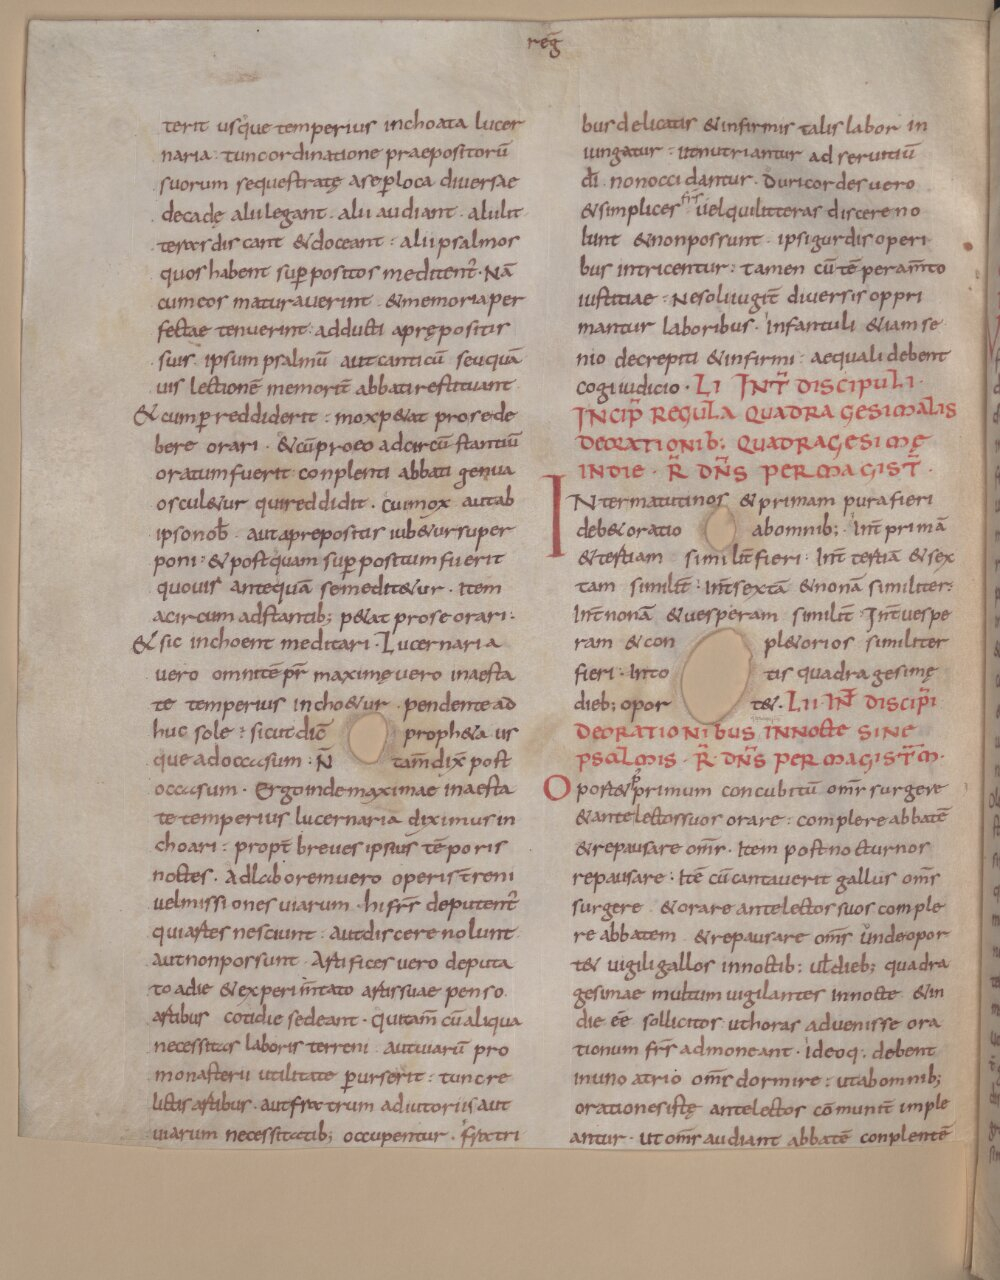 reḡ
terit usque temperius inchoata lucer
naria · tunc ordinatione praepositorū
suorum sequestratę a se p̄ loca diversae
decadę alii legant · alii audiant · alii lit
teras discant & doceant : alii psalmos
quos habent sup̄positos meditent᷑ · Nā
cum eos maturaverint · & memoria per
fectae tenuerint · adducti a prępositis
suis · ipsum psalmū aut canticū seu quā
vis lectionē memorit̄ abbati restituant
& cum p̄reddiderit : mox p&at pro se de
bere orari · & cū pro eo ad circū stantiū
oratum fuerit conplenti abbati genua
oscul&ur qui reddidit · Cui mox aut ab
ipso nob̄ aut a prepositis iub&ur super
poni · & postquam sup̄positum fuerit
quovis antequā se medit&ur · Item
a circum adstantib; p&at pro se orari ·
& sic inchoent meditari · Lucernaria
vero omni tēpr̄ maxime vero in aesta
te temperius incho&ur · pendente ad
huc sole : sicut dic̄ proph&a us
que ad occasum · N̄ tam̄ dix̄ post
occasum · Ergo inde maximae in aesta
te temperius lucernaria diximus in
choari : propt̄ breves ipsius tēporis
noctes · Ad laborem vero operis t̄reni
vel missiones viarum · hi fr̄s deputent᷑
qui artes nesciunt · aut discere nolunt
aut non possunt · Artifices vero deputa
to a die & experim̄tato artis suae penso
artibus cotidie sedeant · Qui tam̄ cū aliqua
necessitas laboris terreni aut viarū pro
monasterii utilitate p̄urserit : tunc re
lictis artibus · aut fratrum adiutoriis aut
viarum necessitatib; occupentur · fratri
bus delicatis & infirmis talis labor in
iungatur : ut nutriantur ad servitiū
dī · non occidantur · Duricordes vero
& simplices fr̄s vel qui litteras discere no
lunt & non possunt · ipsi gurdis operi
bus intricentur : tamen cū tēperam̄to
iustitiae : Ne soli iugit̄ diversis oppri
mantur laboribus · infantuli & iam se
nio decrepiti & infirmi : aequali debent
cogi iudicio · LI INT̄ DISCIPULI
INCIP̄ REGULA QUADRAGESIMALIS
DE ORATIONIB; QUADRAGESIMĘ
IN DIE · R̄ DN̄S PER MAGIST̄ ·
INter matutinos & primam pura fieri
deb& oratio ab omnib; · Int̄ primā
& tertiam similit̄ fieri · Int̄ tertiā & sex
tam similit̄ · Int̄ sextā & nonā similiter ·
Int̄ nonā & vesperam similit̄ · Int̄ vespe
ram & con pl&orios similiter
fieri · In to tis quadragesimę
dieb; opor t& · LII INT̄ DISCIPI
DE ORATIONIBUS IN NOCTE SINE
PSALMIS · R̄ DN̄S PER MAGIST̄M ·
Oport& p̄ primum concubitū om̄s surgere
& ante lectos suos orare : complere abbatē
& repausare om̄s · Item post nocturnos
repausare : Itē cū cantaverit gallus om̄s
surgere & orare ante lectos suos comple
re abbatem & repausare om̄s Unde opor
t& vigiligallos in noctib; vl̄ dieb; quadra
gesimae multum vigilantes in nocte & in
die eē sollicitos ut horas advenisse ora
tionum fr̄s admoneant · ideoq; debent
in uno atrio om̄s dormire : ut ab omnib;
orationes istę ante lectos cōmunit̄ imple
antur · ut om̄s audiant abbatē conplentē